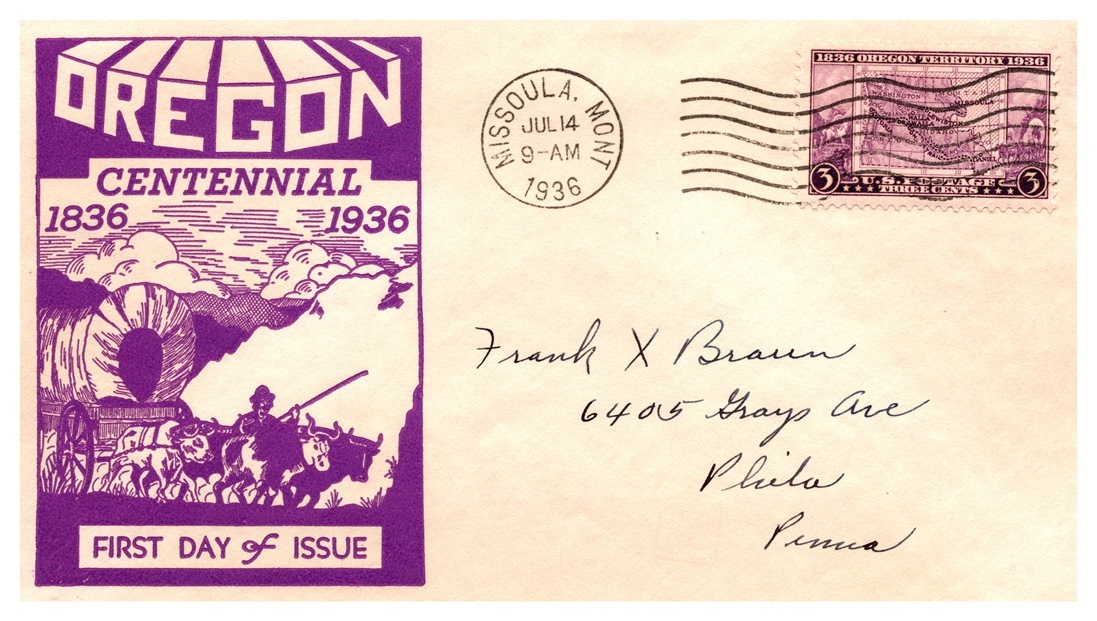 OREGON
CENTENNIAL
1836 1936
FIRST DAY of ISSUE
MISSOULA, MONT
JUL 14
9-AM
1936
1836 OREGON TERRITORY 1936
WASHINGTON MONTANA
MISSOULA
IDAHO
3 U.S. POSTAGE 3
THREE CENTS
Frank X Braun
6405 Grays Ave
Phila
Penna